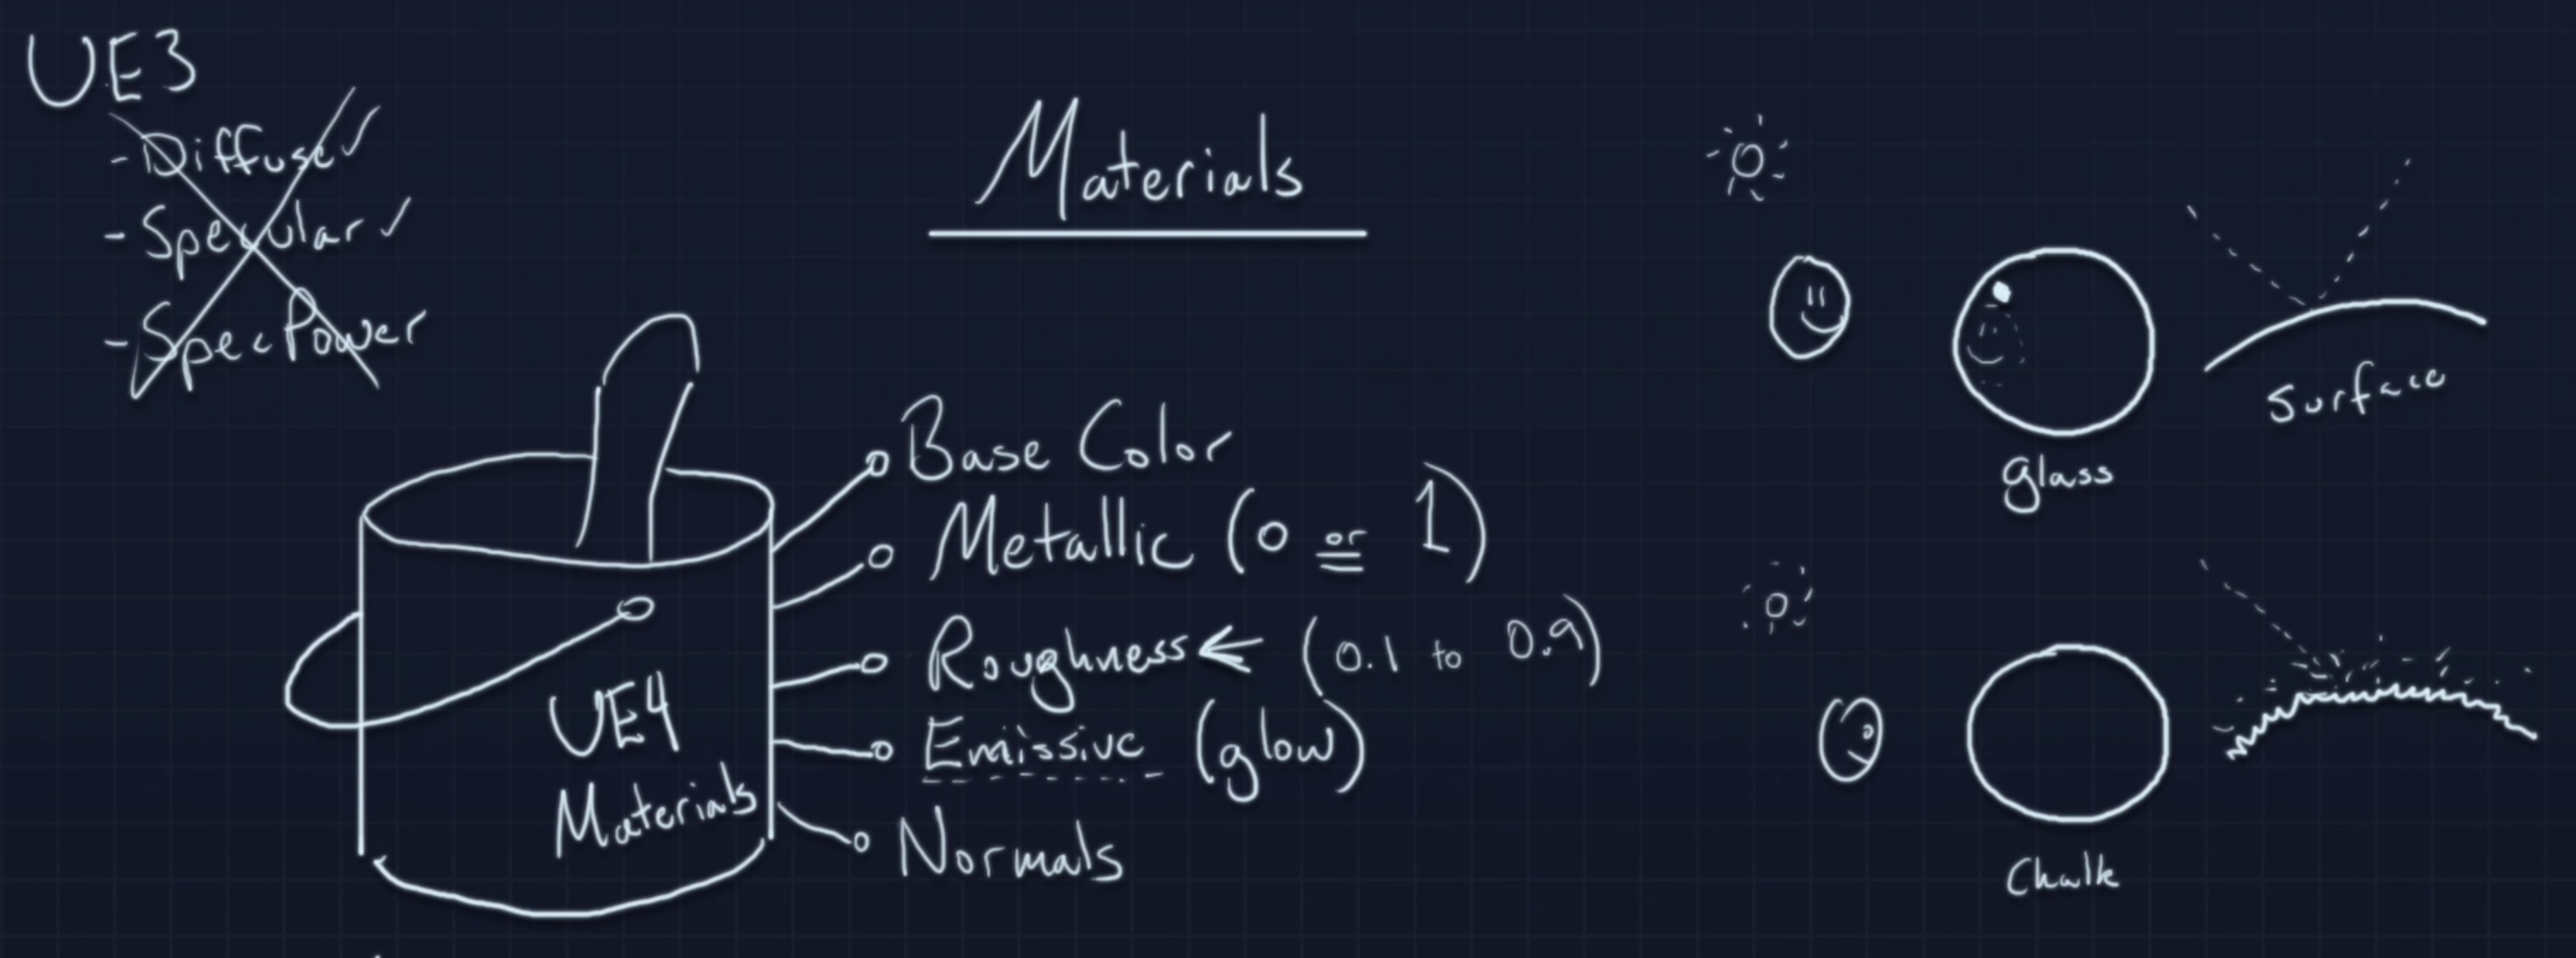 UE3
- Diffuse ✓
- Specular ✓
- SpecPower
Materials
UE4
Materials
Base Color
Metallic (0 or 1)
Roughness ← (0.1 to 0.9)
Emissive (glow)
Normals
glass
Surface
Chalk